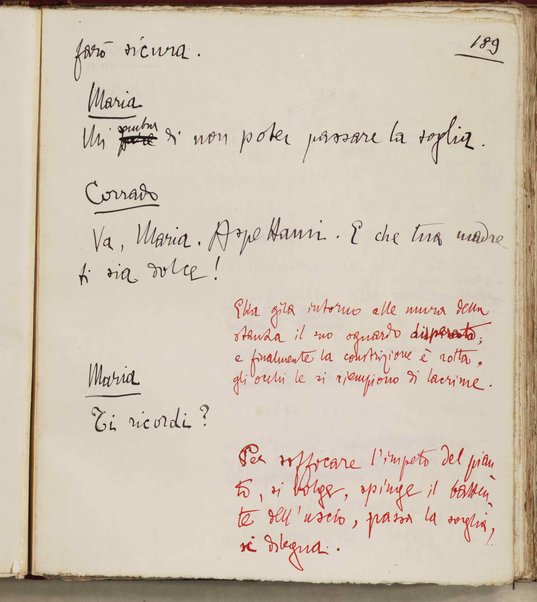 189
farò sicura.
Maria
Mi sembra di non poter passare la soglia.
Corrado
Va, Maria. Aspettami. E che tua madre
ti sia dolce!
Ella gira intorno alle mura della
stanza il suo sguardo disperato;
e finalmente la constrizione è rotta.
gli occhi le si riempiono di lacrime.
Maria
Ti ricordi?
Per soffocare l'impeto del pian-
to, si volge, spinge il batten-
te dell'uscio, passa la soglia,
si dilegua.